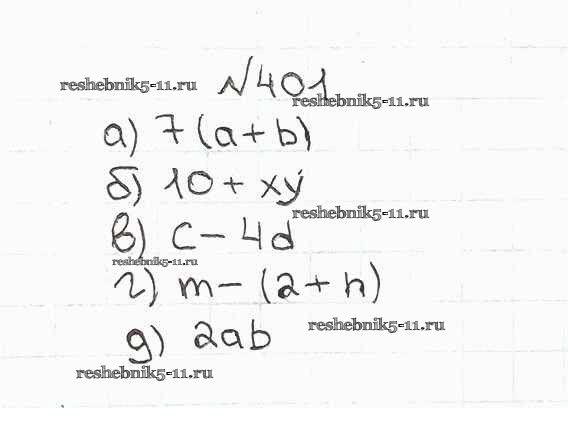 №401
reshebnik5-11.ru
reshebnik5-11.ru
а) 7(a+b)
б) 10+xy
reshebnik5-11.ru
в) c-4d
reshebnik5-11.ru
г) m-(2+n)
reshebnik5-11.ru
д) 2ab
reshebnik5-11.ru